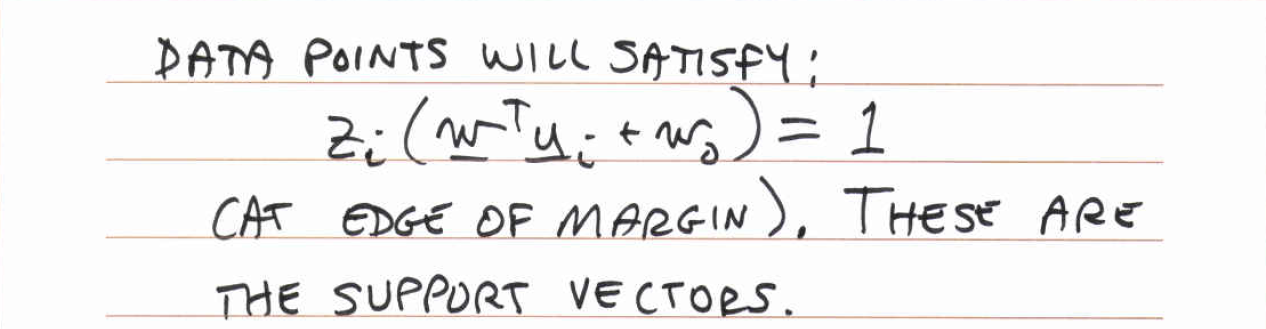 DATA POINTS WILL SATISFY:
z_i(w^T y_i + w_0) = 1
(AT EDGE OF MARGIN). THESE ARE
THE SUPPORT VECTORS.